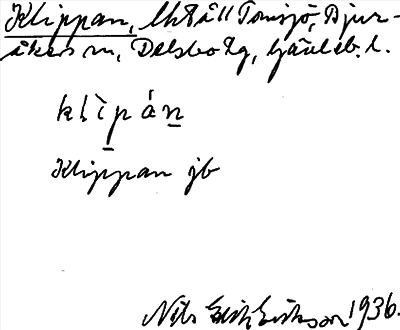 Klippan, Uht åll Tomsjö, Bjur-
åkers sn, Delsbo tg, Gävleb. l.
klìpán
Klippan jb
Nils Erik Eriksson 1936.